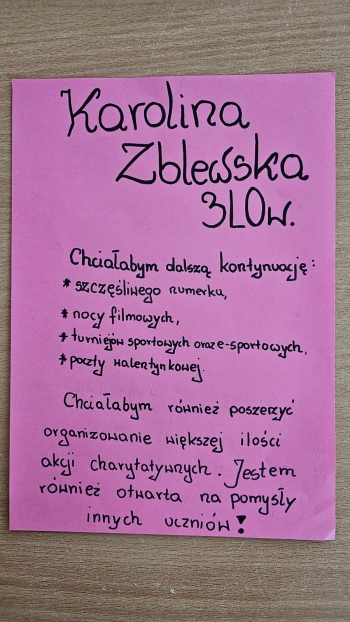 Karolina
Zblewska
3LOw.
Chciałabym dalszą kontynuację:
* szczęśliwego numerka,
* nocy filmowych,
* turniejów sportowych oraz e-sportowych,
* poczty walentynkowej.
Chciałabym również poszerzyć
organizowanie większej ilości
akcji charytatywnych. Jestem
również otwarta na pomysły
innych uczniów!